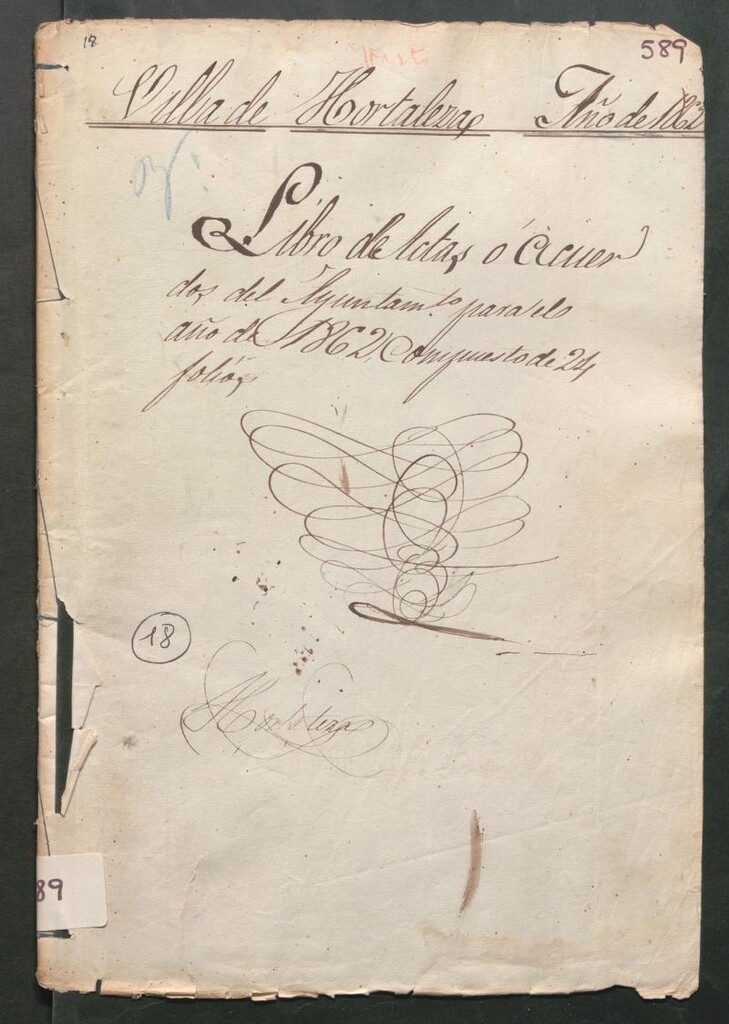 18
Visto
589
Villa de Hortaleza Año de 1862
Libro de Actas ó Acuer
dos del Ayuntam.to para el
año de 1862 Compuesto de 24
folios
18
Hortaleza
89